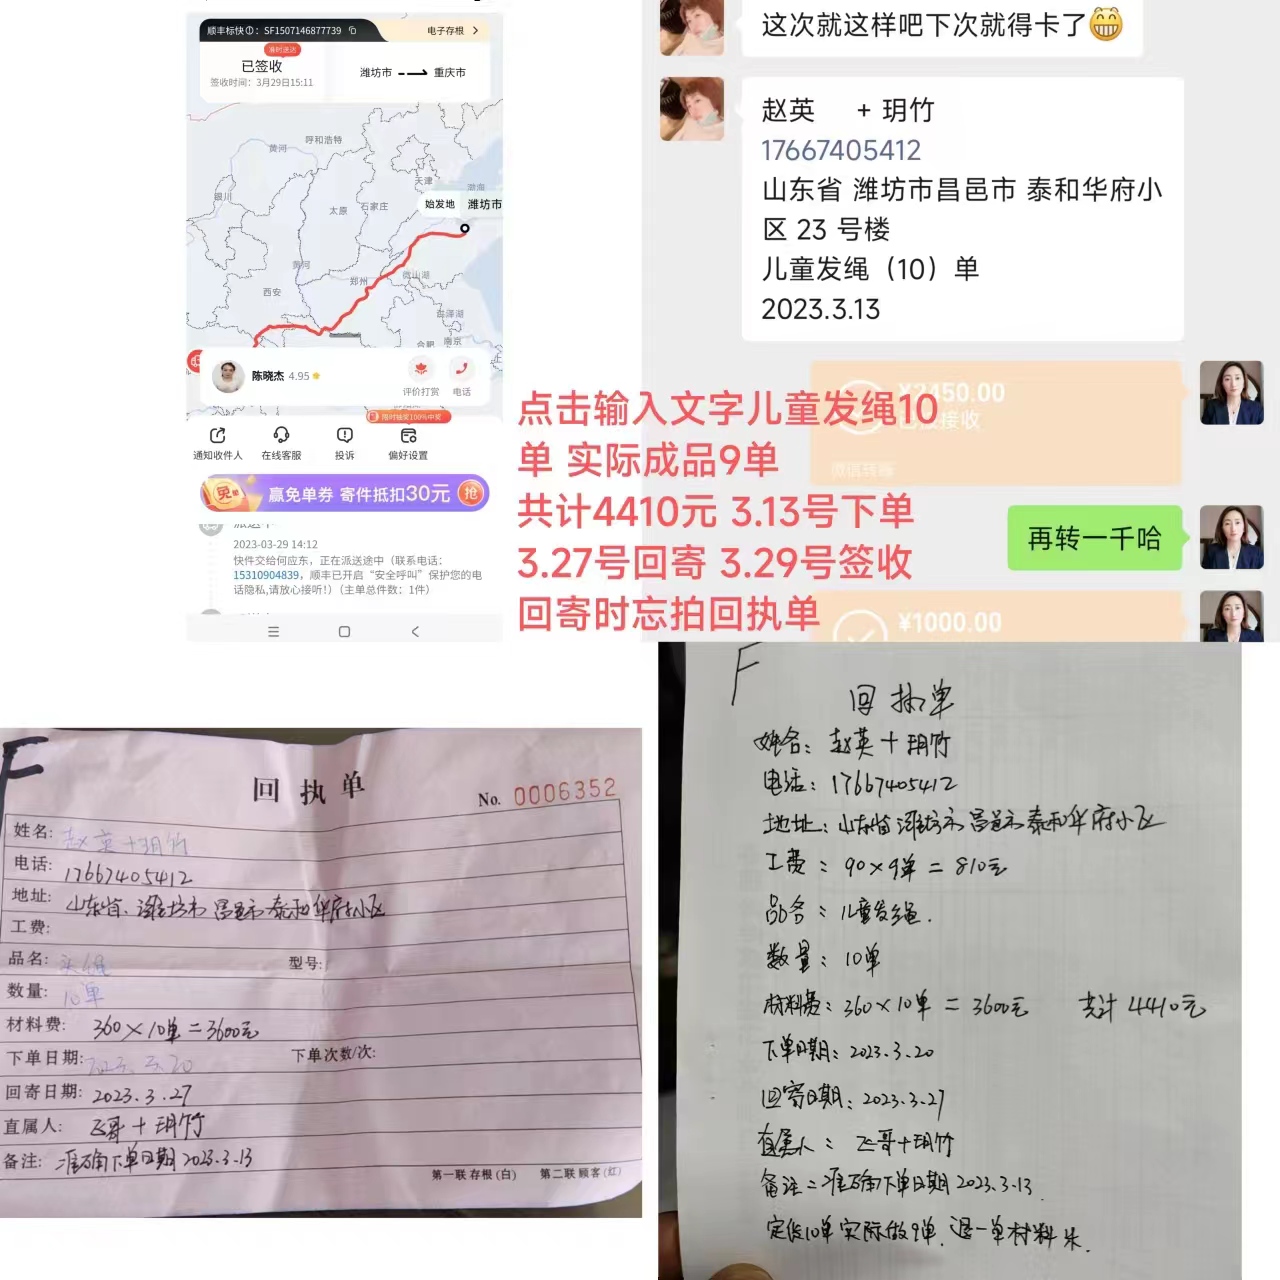 顺丰标快：SF1507146877739
电子存根
准时送达
已签收
签收时间：3月29日15:11
潍坊市
重庆市
呼和浩特
黄河
银川
天津
渤海
太原
石家庄
始发地 潍坊市
黄河
郑州
微山湖
西安
洪泽湖
合肥
南京
陈晓杰 4.95
评价打赏
电话
限时抽奖100%中奖
通知收件人
在线客服
投诉
偏好设置
免单
赢免单券 寄件抵扣30元
抢
派送中
2023-03-29 14:12
快件交给何应东，正在派送途中（联系电话：
15310904839，顺丰已开启“安全呼叫”保护您的电
话隐私,请放心接听！）（主单总件数：1件）
这次就这样吧下次就得卡了
赵英 + 玥竹
17667405412
山东省 潍坊市昌邑市 泰和华府小
区 23 号楼
儿童发绳（10）单
2023.3.13
¥3450.00
已被接收
微信转账
再转一千哈
¥1000.00
点击输入文字儿童发绳10
单 实际成品9单
共计4410元 3.13号下单
3.27号回寄 3.29号签收
回寄时忘拍回执单
F
回执单
No. 0006352
姓名: 赵英+玥竹
电话: 17667405412
地址: 山东省、潍坊市昌邑市泰和华府小区
工费:
品名: 头绳
型号:
数量: 10单
材料费: 360×10单=3600元
下单日期: 2023.3.20
下单次数/次:
回寄日期: 2023.3.27
直属人: 飞哥+玥竹
备注: 准确下单日期2023.3.13
第一联 存根 (白) 第二联 顾客 (红)
F
回执单
姓名：赵英+玥竹
电话：17667405412
地址：山东省潍坊市昌邑市泰和华府小区
工费：90×9单=810元
品名：儿童发绳.
数量：10单
材料费：360×10单=3600元 共计4410元
下单日期：2023.3.20
回寄日期：2023.3.27
直属人：飞哥+玥竹
备注：准确下单日期2023.3.13.
定位10单实际做9单,退一单材料来.